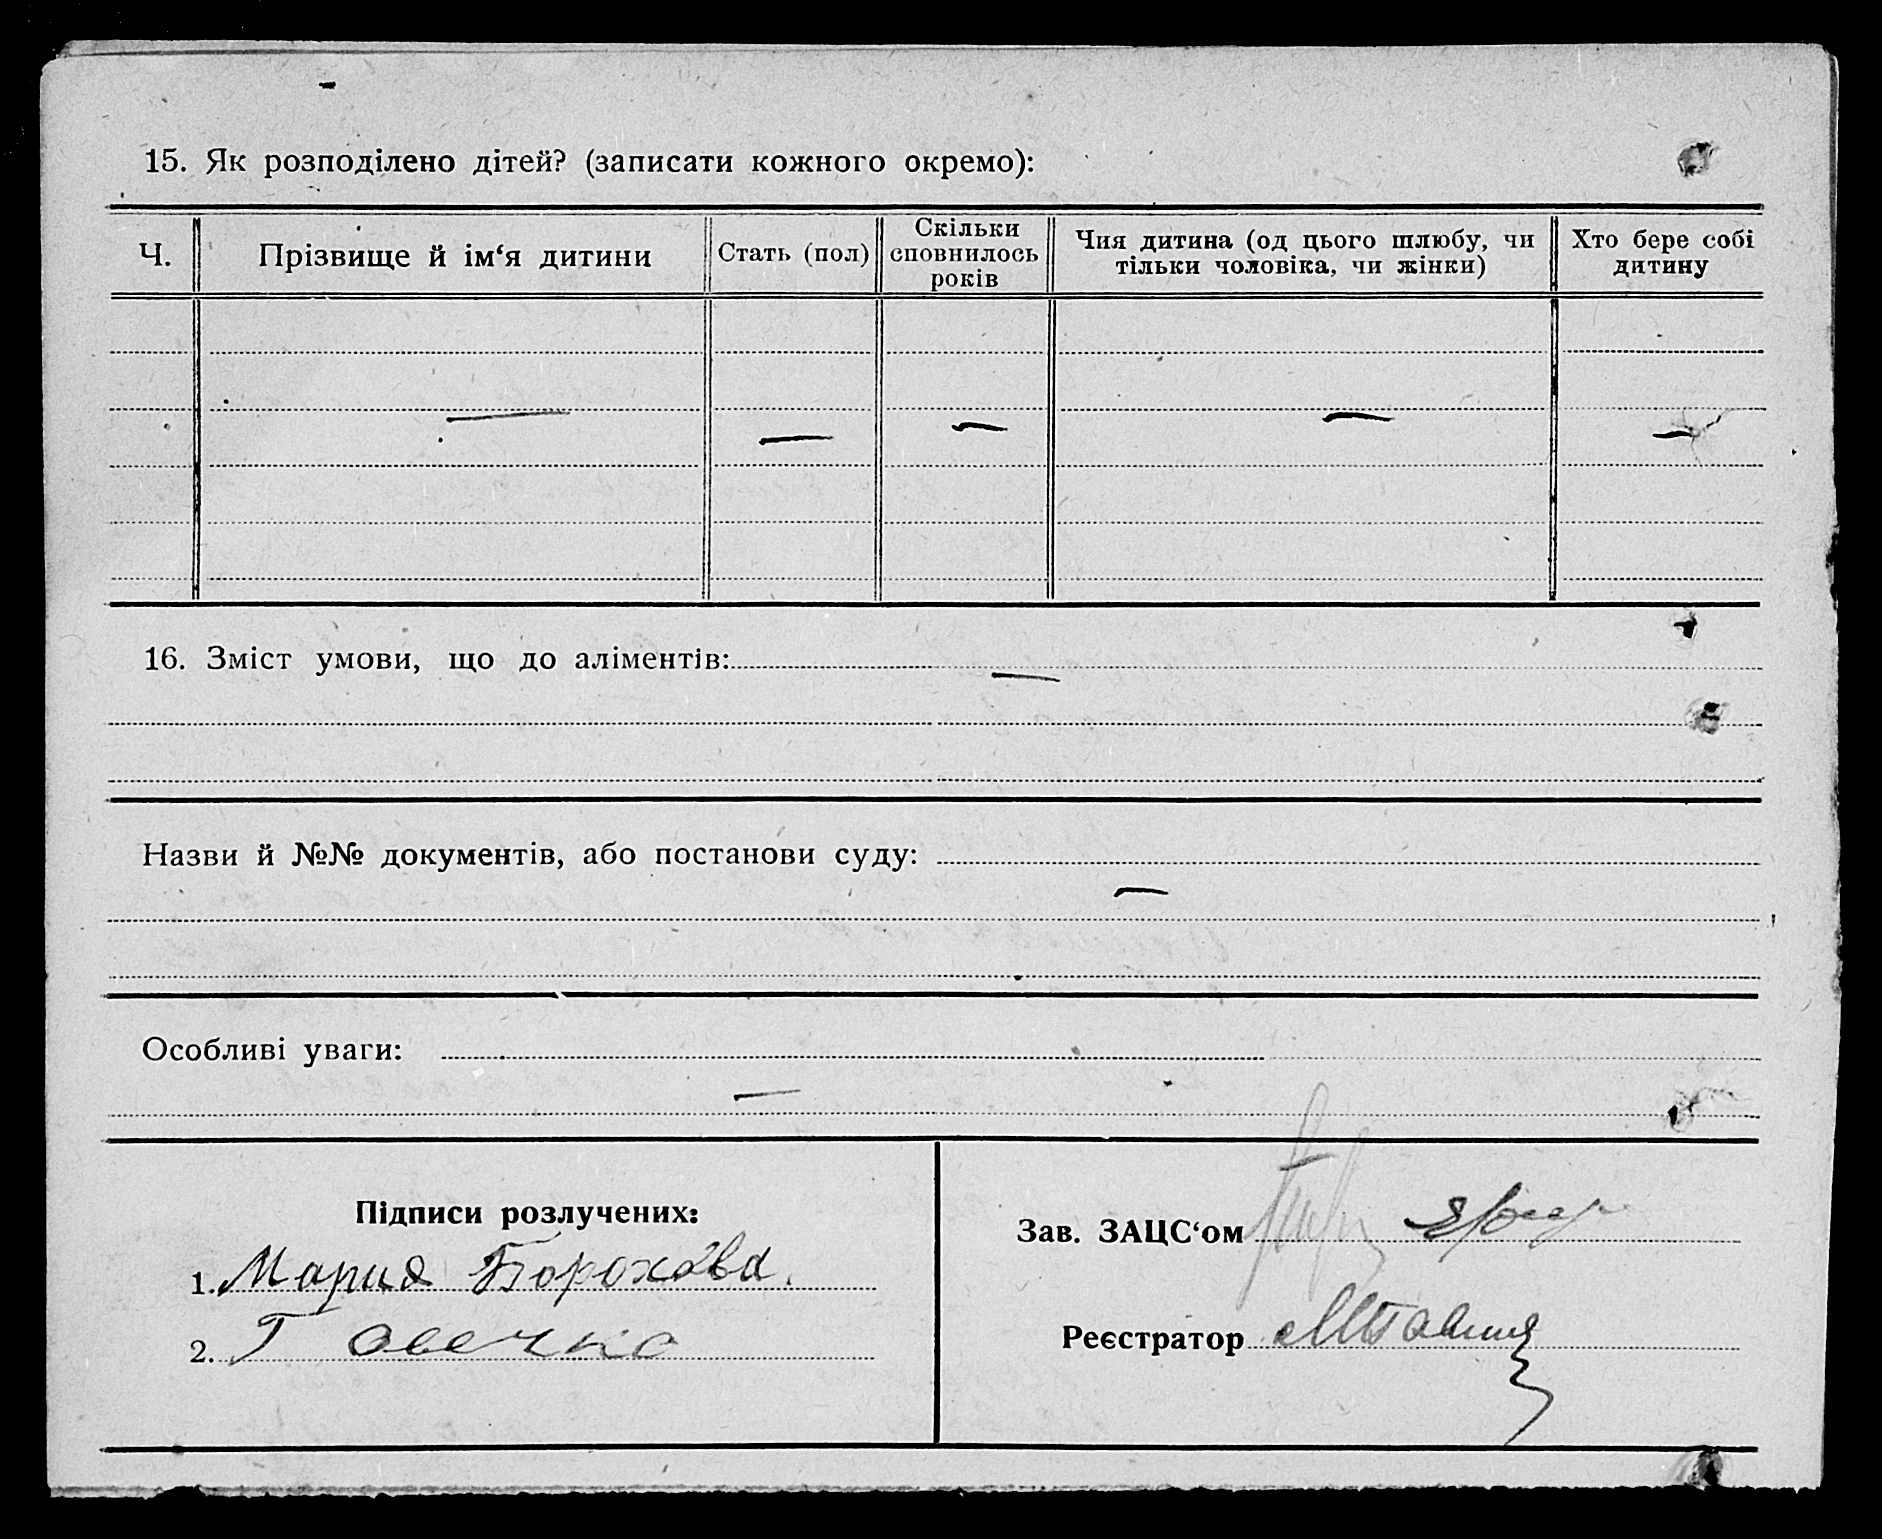 15. Як розподілено дітей? (записати кожного окремо):
Ч.
Прізвище й ім‘я дитини
Стать (пол)
Скільки
сповнилось
років
Чия дитина (од цього шлюбу, чи
тільки чоловіка, чи жінки)
Хто бере собі
дитину
— — — — —
16. Зміст умови, що до аліментів:
—
Назви й №№ документів, або постанови суду:
—
Особливі уваги:
—
Підписи розлучених:
1. Мария Борохова.
2. Г Овечко
Зав. ЗАЦС‘ом
Реєстратор